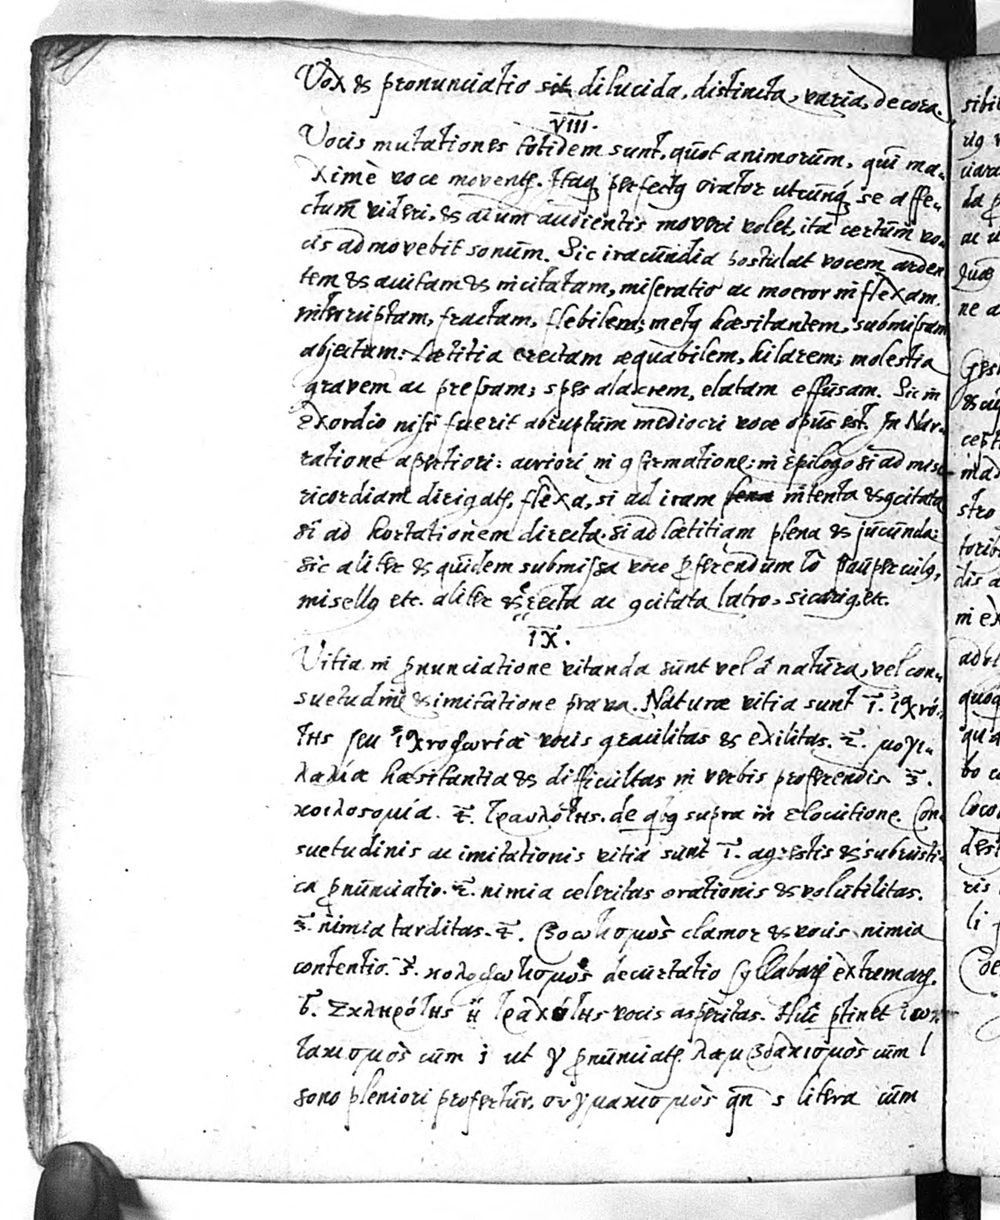 Vox & pronunciatio sit dilucida, distincta, varia, decora.
VIII.
Vocis mutationes totidem sunt, quot animorūm, qui ma-
ximè voce moventr. Itaq perfectq orator utcūnq se affe-
ctum videri, & aīum audientis moveri volet, ita certūm vo-
cis admovebit sonūm. Sic iracūndia postulat vocem arden
tem & acutam & incitatam, miseratio ac moeror inflexam.
interruptam, fractam, flebilem; metq hæsitantem, submissam
abjectam: Lætitia erectam æquabilem, hilarem; molestia
gravem ac pressam; spes alacrem, elatam effūsam. Sic in
Exordio nisi fuerit abruptūm mediocri voce opūs est. In Nar-
ratione apertiori: acriori in 9firmatione; in Epilogo si ad mise
ricordiam dirigatr, flexa, si ad iram intenta & 9citata
si ad hortationem directa. si ad lætitiam plena & jūcūnda:
sic aliter & quidem submissa voce pferendum Io pauperculq,
misellq etc. aliter & erecta ac 9citata latro, sicariq, etc.
IX.
Vitia in pnunciatione vitanda sūnt vel à natūra, vel con-
suetudine & imitatione prava. Naturæ vitia sunt 1. ἰσχνό-
της seu ἰσχνοφωνία vocis gracilitas & exilitas. 2. μογι-
λαλία hæsitantia & difficultas in verbis proferendis 3.
κοιλοστομία. 4. τραυλότης. de qbq supra in Elocutione. Con
suetudinis ac imitationis vitia sūnt 1. agrestis & subrusti
ca pnūnciatio. 2. nimia celeritas orationis & volūbilitas.
3. nimia tarditas. 4. βοωτισμὸς clamor & vocis nimia
contentio. 5. κολοφωτισμὸς decurtatio syllabarr extremarr.
6. Σκληρότης ἢ τραχύτης vocis asperitas. Hūc ptinet ἰωτ
τακισμὸς cūm i ut γ pnūnciatr. λαμβδακισμὸς cūm l
sono pleniori profertūr, συγμακισμὸς qn s litera cūm